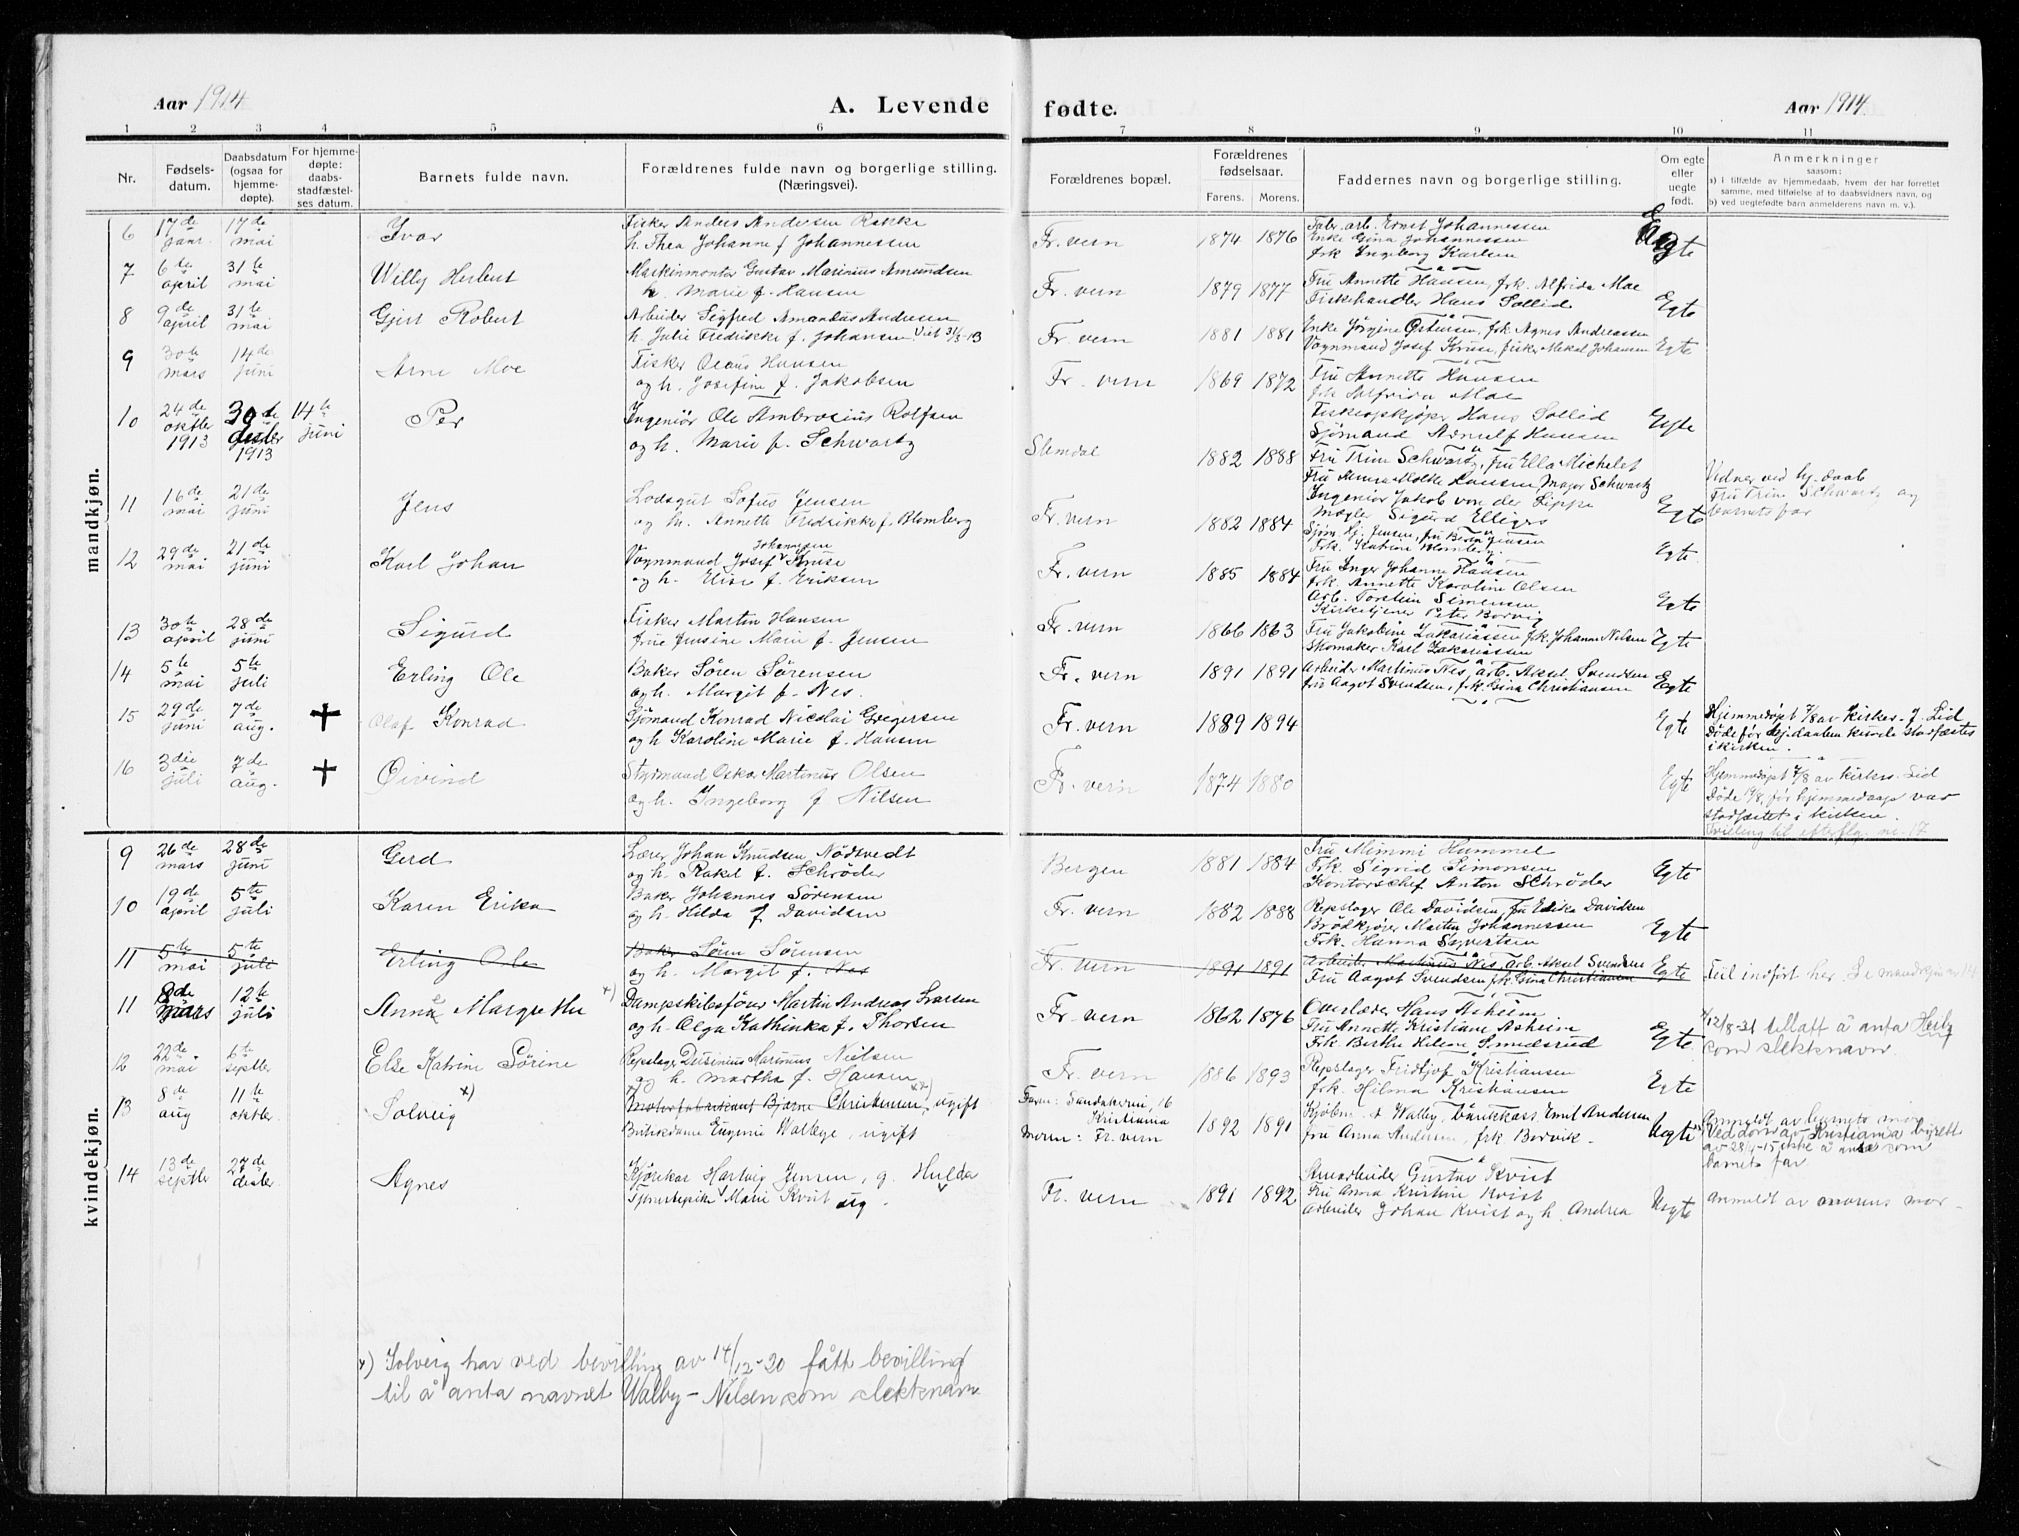 Aar 1914
A. Levende
fødte.
Aar 1914
1 2 3 4 5 6 7 8 9 10 11
Nr.
Fødsels-
datum.
Daabsdatum
(ogsaa for
hjemme-
døpte).
For hjemme-
døpte:
daabs-
stadfæstel-
ses datum.
Barnets fulde navn.
Forældrenes fulde navn og borgerlige stilling.
(Næringsvei).
Forældrenes bopæl.
Forældrenes
fødselsaar.
Farens. Morens.
Faddernes navn og borgerlige stilling.
Om egte
eller
uegte
født.
Anmerkninger
saasom:
a) i tilfælde av hjemmedaab, hvem der har forrettet
samme, med tilføielse af to daabsvidners navn, og
b) ved uegtefødte barn anmelderens navn m. v.).
mandkjøn.
6 17de januar 17de mai Ivar
Fisker Anders Andersen Rakke
h. Thea Johanne f Johannessen
Fr. vern 1874 1876
Fabr. arb. Ernst Johannessen
Enke Gina Johannessen
frk Ingeborg Karlsen
Egte
7 6te april 31te mai Willy Herbert
Maskinmontør Gustav Marinius Amundsen
h. Marie f. Hansen
Fr. vern 1879 1877
Fru Annette Hansen, frk. Alfrida Moe
Fiskehandler Hans Sollid
Egte
8 9de april 31te mai Gjert Robert
Arbeider Sigfred Amandus Andersen
h. Julie Fredrikke f. Johansen, Viet 31/5-13
Fr. vern 1881 1881
Enke Jørgine Ostensen, frk Agnes Andreassen
Vognmand Josef Kruse, fisker Mekal Johansen
Egte
9 30te mars 14de juni Arne Moe
Fisker Olaus Hansen
og h. Josefine f. Jakobsen
Fr. vern 1869 1872
Fru Annette Hansen
frk Alfrida Moe
Fiskeopkjøper Hans Sollid
Sjømand Hansen
Egte
10 24de oktbr 1913 30te desbr 1913 14te juni Per
Ingeniør Ole Ambrosius Rolfsen
og h. Marie f. Schwartz
Slemdal 1882 1888
Fru Trine Schwartz, fru Ella Michelet
Fru Anna Moltke Hansen, Major Schwartz
Ingeniør Jakob von der Lippe
Mægler Sigurd Elligers
Egte
Vidner ved hj. daab
Fru Trine Schwartz og
barnets far
11 16de mai 21de juni Jens
Lodsgut Sofus Jensen
og h. Annette Fredrikke f. Blomberg
Fr. vern 1882 1884
Sjøm. Hj. Jensen, fru Berta Jensen
Frk. Katrine Blomberg.
Egte
12 29de mai 21de juni Karl Johan
Johannesen
Vognmand Josef Kruse
og h. Elise f. Eriksen
Fr. vern 1885 1884
Fru Inger Johanne Hansen
frk. Annette Karoline Olsen
Arb. Torstein Simensen
Kirketjener Peter Borvig
Egte
13 30te april 28de juni Sigurd
Fisker Martin Hansen
frue Jensine Marie f. Jensen
Fr. vern 1866 1863
Fru Jakobine Zakariassen frk. Johanne Nilsen
Skomaker Karl Zakariassen
Egte
14 5te mai 5te juli Erling Ole
Baker Søren Sørensen
og h. Margit f. Nes.
Fr. vern 1891 1891
Arbeider Martinus Nes, arb. Aksel Svendsen
fru Aagot Svendsen, frk Gina Christiansen
Egte
15 29de juni 7de aug. + Olaf Konrad
Sjømand Konrad Nicolai Gregersen
og h Karoline Marie f. Hansen
Fr. vern 1889 1894
Egte
Hjemmedøpt 7/8 av kirkes. J. Lid
Døde før hj.daaben kunde stadfæstes
i kirken.
16 3die juli 7de aug. + Øivind
Styrmand Oskar Martinus Olsen
og h. Ingeborg f Nilsen
Fr. vern 1874 1880
Egte
Hjemmedøpt 7/8 av kirkes. Lid
Døde før hjemmedaap var
stadfæstet i kirken.
Tvilling til efterflg. nr. 17
kvindekjøn.
9 26de mars 28de juni Gerd
Lærer Johan Knudsen Nødtvedt
og h. Rakel f. Schrøder
Bergen 1881 1884
Fru Mimmi Hummel
Frk. Sigrid Simonsen
Kontorschef Anton Schrøder
Egte
10 19de april 5te juli Karen Erika
Baker Johannes Sørensen
og h. Hilda f Davidsen
Fr. vern 1882 1888
Repslager Ole Davidsen, fru Erika Davidsen
Brødkjører Martin Johannessen
Frk. Hanna Syvertsen
Egte
11 5te mai 5te juli Erling Ole
Baker Søren Sørensen
og h. Margit f. Nes
Fr. vern 1891 1891
Arbeider Martinus Nes, arb. Aksel Svendsen
Fru Aagot Svendsen frk Gina Christiansen
Egte
Feil indført her. Se mandkjøn nr 14
11 8de mars 12te juli Anna Margrethe x)
Dampskibsfører Martin Andreas Larsen
og h. Olga Kathinka f. Thorsen
Fr. vern 1862 1876
Overlærer Hans Asheim
Fru Annette Kristiane Asheim
Frk Berthe Helene Smedsrud
Egte
x) 12/8-31 tillatt å anta
som slektsnavn.
12 22de mai 6te septbr Else Katrine Sørine
Repslager Martinus Nielsen
og h. Martha f. Hansen
Fr. vern 1886 1893
Repslager Fridtjof Kristiansen
frk. Hilma Kristiansen
Egte
13 8de aug 11te oktbr Solveig x)
Motorfabrikant Bjarne Christensen, ugift xx)
Butikdame Eugenie Walbye, ugift
Faren: Sandakerveien, 16
Kristiania
Moren: Fr. vern
1892 1891
Kjøbm. A Walby, Emil Andersen
fru Anna Andersen, frk Borvik.
Uegte
Anmeldt av barnets mor
Ved dom av Kristiania byrett
av 28/1-15 ikke å anse som
barnets far
14 13de septbr 27de desbr Agnes
Kjørekar Hartvig Jensen, g. Hulda
Tjenestepike Marie Kvist ug.
Fr. vern 1891 1892
Gustav Kvist
Fru Anna Kristine Kvist
Arbeider Johan Kvist og h. Andrea
Uegte
Anmeldt av morens mor
x) Solveig har ved bevilling av 14/12-20 fått bevilling
til å anta navnet Walby-Nilsen som slektsnavn